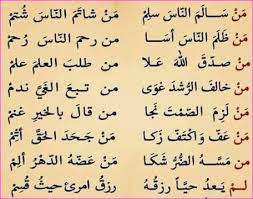 مَنْ سَالَمَ النَّاسَ سَلِمْ مَنْ شَاتَمَ النَّاسَ شُتِمْ
مَنْ ظَلَمَ النَّاسَ أَسَا من رحمَ النّاسَ رُحِمْ
مَنْ صدَقَ اللهَ عَلَا من طلبَ العلمَ علمْ
مَنْ خالفَ الرُّشدَ غوَى من تبعَ الغيَّ ندمْ
مَنْ لَزِمَ الصَّمْتَ نَجَا من قالَ بالخيرِ غنمْ
مَنْ عَفَّ وَاكْتَفَّ زَكَا مَنْ جَحَدَ الْحَقَّ أَثِمْ
من مَسَّهُ الضُّرُّ شَكَا مَنْ عَضَّهُ الدَّهْرُ أَلِمْ
لمْ يَعدُ حيّاً رزقُهُ رزقُ امرئٍ حيثُ قُسِمْ